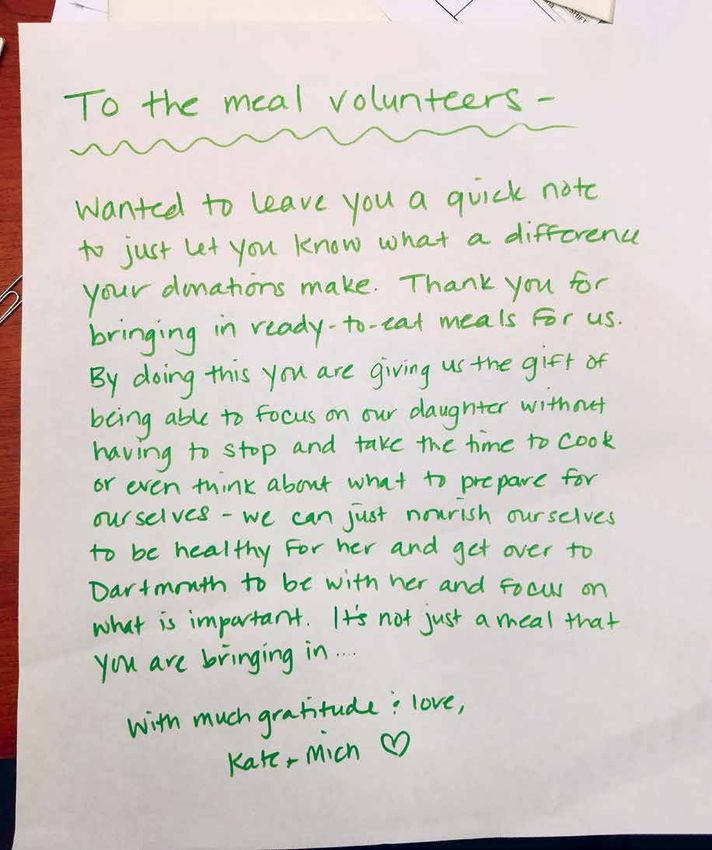 To the meal volunteers -
Wanted to leave you a quick note
to just let you know what a difference
your donations make. Thank you for
bringing in ready-to-eat meals for us.
By doing this you are giving us the gift of
being able to focus on our daughter without
having to stop and take the time to cook
or even think about what to prepare for
ourselves - we can just nourish ourselves
to be healthy for her and get over to
Dartmouth to be with her and focus on
what is important. It's not just a meal that
you are bringing in....
With much gratitude & love,
Kate + Mich ♡